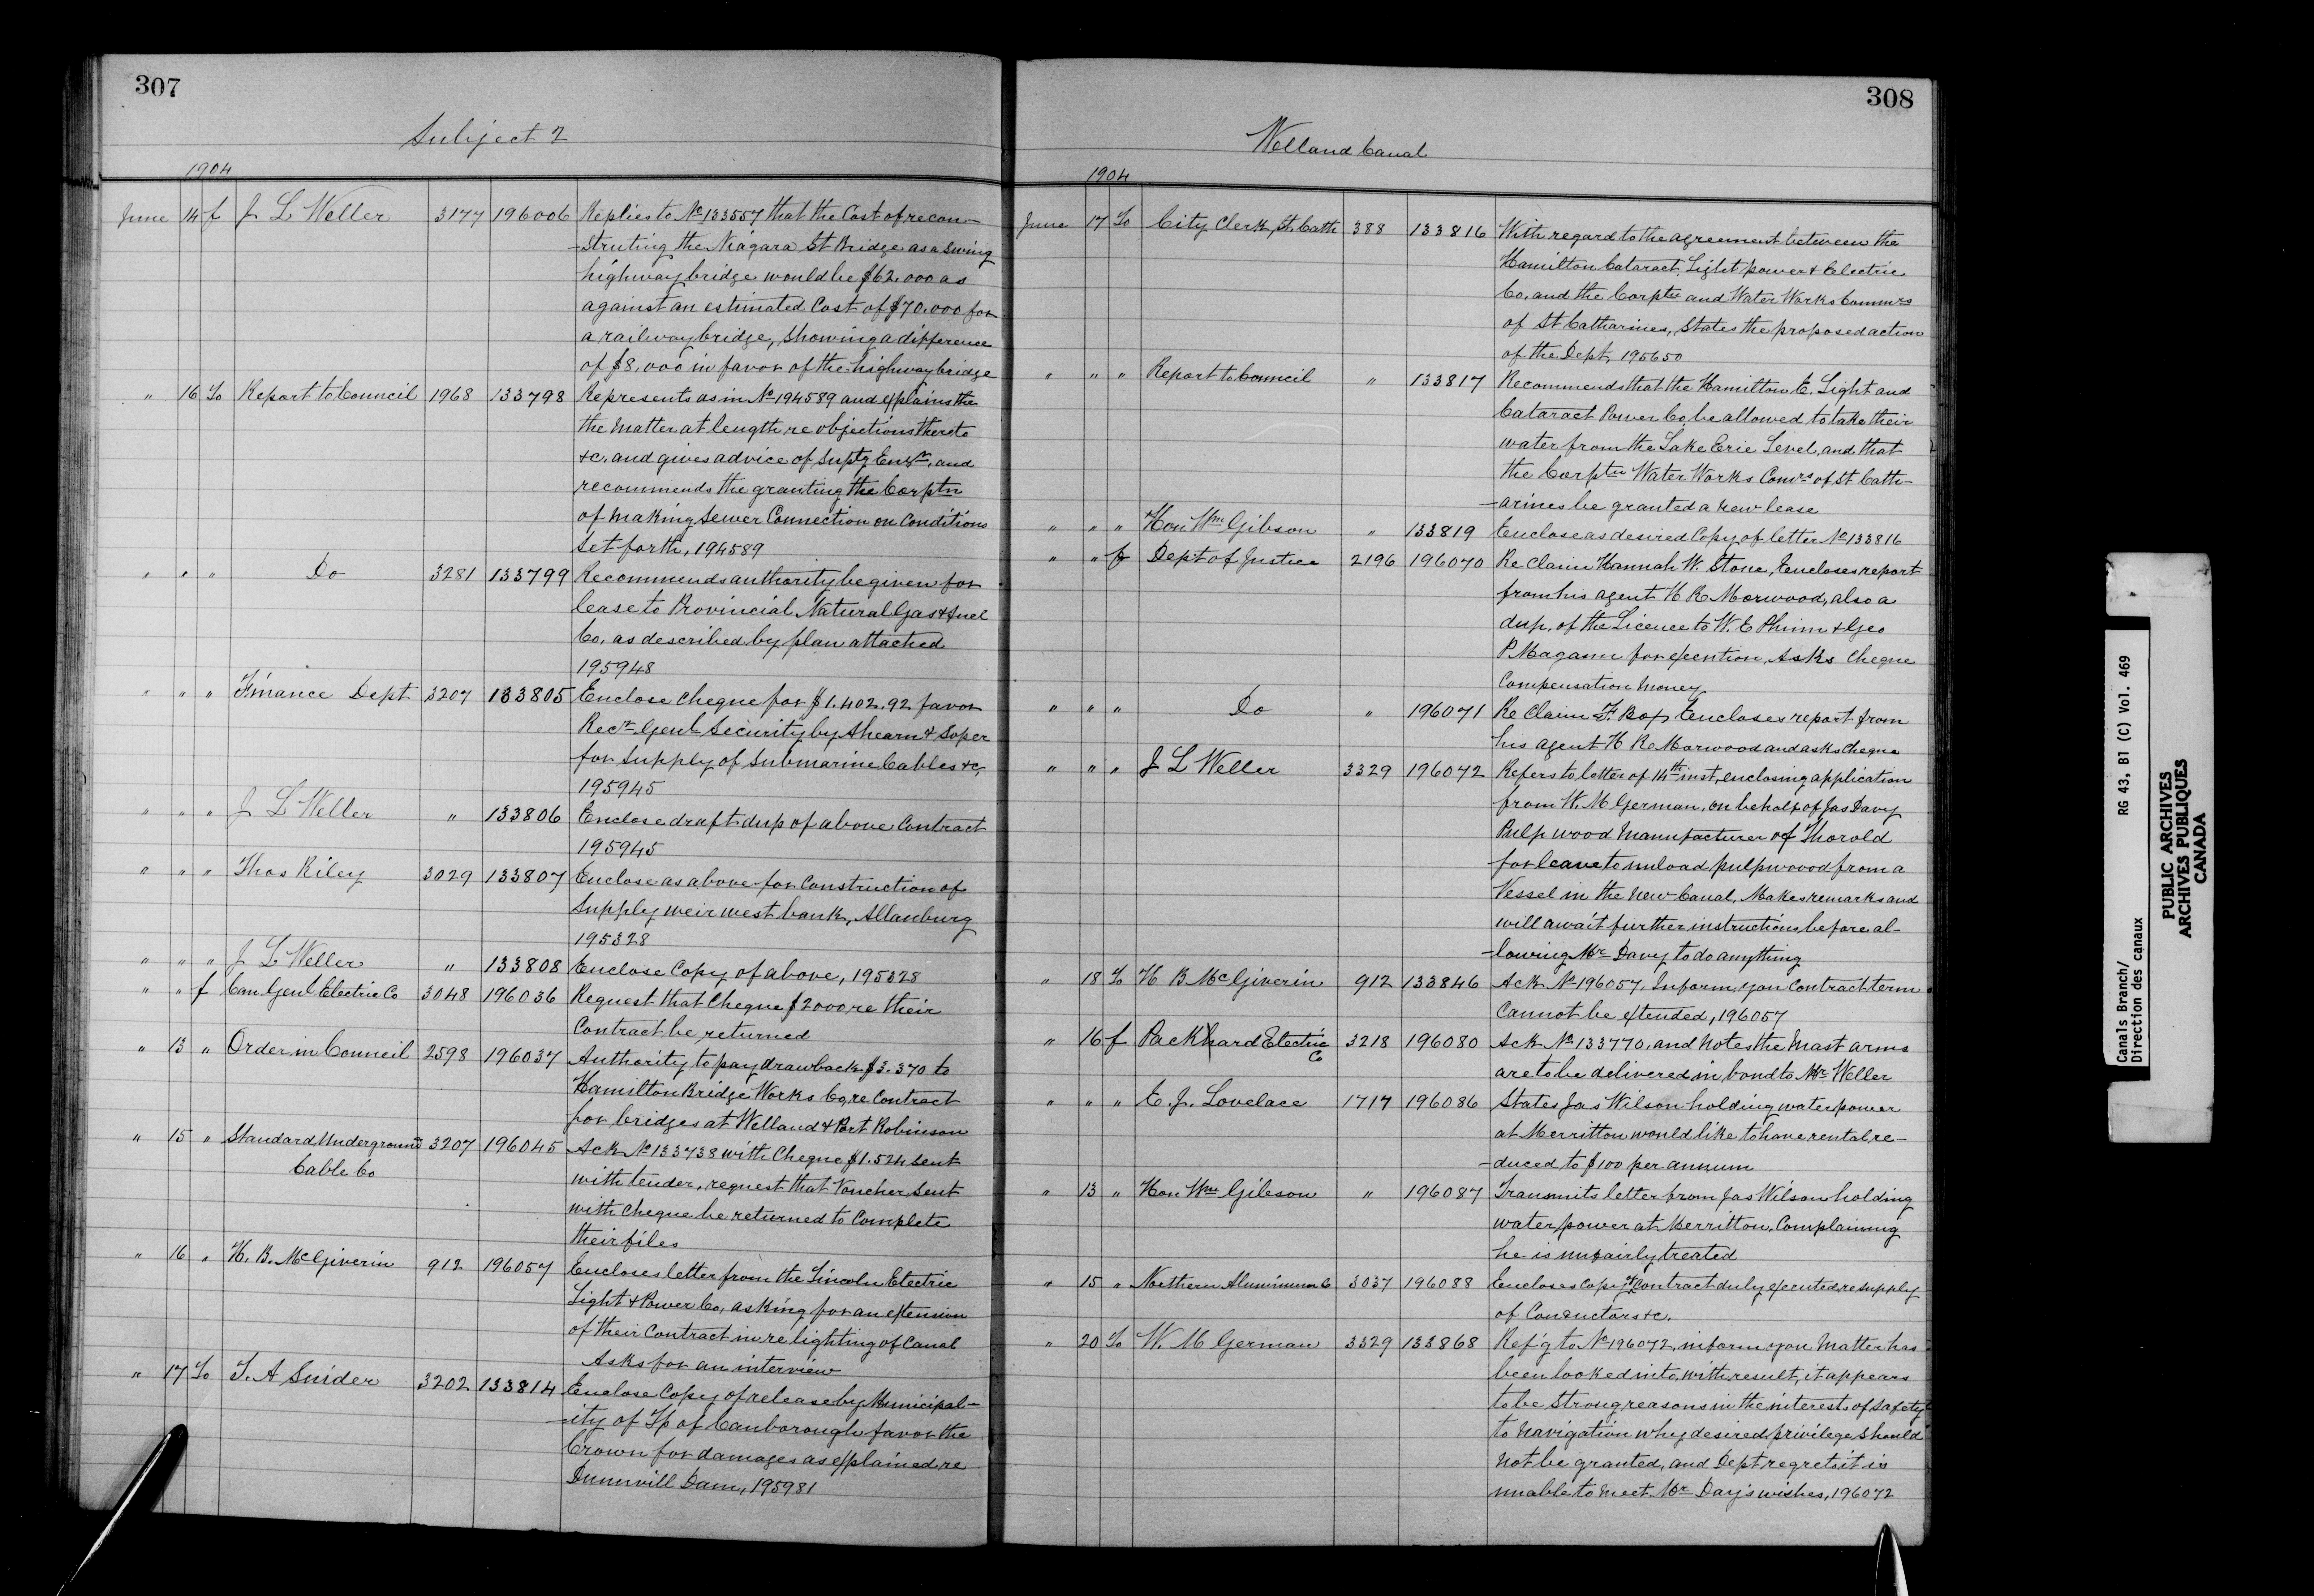 307
Subject 2
1904
June 14 f J L Weller 3177 196006 Replies to No 133557 that the Cost of recon-
-structing the Niagara St Bridge as a Swing
highway bridge would be $62.000 as
against an estimated Cost of $70.000 for
a railway bridge, showing a difference
of $8.000 in favor of the highway bridge
" 16 To Report to Council 1968 133798 Represents as in No 194589 and explains the
the matter at length re objections thereto
&c. and gives advice of Suptg Engr, and
recommends the granting the Corptn
of making Sewer Connection on Conditions
Set forth, 194589
" " " Do 3281 133799 Recommends authority be given for
lease to Provincial Natural Gas & Fuel
Co. as described by plan attached
195948
" " " Finance Dept 3207 133805 Enclose Cheque for $1.402.92 favor
Recr Genl Security by Ahearn & Soper
for Supply of Submarine Cables &c,
195945
" " " J L Weller " 133806 Enclose draft dup of above Contract
195945
" " " Thos Riley 3029 133807 Enclose as above for Construction of
Supply weir west bank, Allanburg
195328
" " " J L Weller " 133808 Enclose Copy of above, 195328
" " f Can Genl Electric Co 3048 196036 Request that Cheque $2000 re their
Contract be returned
" 13 " Order in Council 2598 196037 Authority to pay drawback $3.370 to
Hamilton Bridge Works Co, re Contract
for bridges at Welland & Port Robinson
" 15 " Standard Underground 3207 196045 Ack No 133738 with Cheque $1.524 sent
Cable Co
with tender, request that Voucher Sent
with Cheque be returned to Complete
their files
" 16 " H. B. McGiverin 912 196057 Encloses letter from the Lincoln Electric
Light & Power Co, asking for an extension
of their Contract in re lighting of Canal
Asks for an interview
" 17 To T. A Snider 3202 133814 Enclose Copy of release by Municipal-
-ity of Tp of Canborough favor the
Crown for damages as explained re
Dunnvill Dam, 195981
308
Welland Canal
1904
June 17 To City Clerk, St. Cath 388 133816 With regard to the agreement between the
Hamilton Cataract, Light power & Electric
Co. and the Corptn and Water Works Commrs
of St Catharines, States the proposed action
of the Dept, 195650
" " " Report to Council " 133817 Recommends that the Hamilton E. Light and
Cataract Power Co, be allowed to take their
water from the Lake Erie Level, and that
the Corptn Water Works Comrs of St Cath-
-arines be granted a new lease
" " " Hon Wm Gibson " 133819 Enclose as desired Copy of letter No 133816
" " f Dept of Justice 2196 196070 Re Claim Hannah W. Stone, Encloses report
from his agent H R Morwood, also a
dup. of the Licence to W. E Phinn & Geo
P. Magann for exection, Asks Cheque
Compensation Money
" " " Do " 196071 Re Claim F. Box Encloses report from
his agent H R Morwood and asks Cheque
" " " J L Weller 3329 196072 Refers to letter of 14th inst, enclosing application
from W. M German, on behalf of Jas Davy
Pulp wood Manufacturer of Thorold
for leave to unload pulpwoood from a
Vessel in the New Canal, Makes remarks and
will await further instructions before al-
-lowing Mr Davy to do anything
" 18 To H B McGiverin 912 133846 Ack No 196057, Inform you Contract term
Cannot be extended, 196057
" 16 f Packhard Electric 3218 196080 Ack No 133770, and notes the Mast arms
Co
are to be delivered in bond to Mr Weller
" " " E. J. Lovelace 1717 196086 States Jas Wilson holding water power
at Merritton would like to have rental re-
-duced to $100 per annum
" 13 " Hon Wm Gibson " 196087 Transmits letter from Jas Wilson holding
water power at Merritton, Complaining
he is unfairly treated
" 15 " Northern Aluminum Co 3037 196088 Encloses Copy of Contract duly executed, re supply
of Conductors &c.
" 20 To W. M German 3329 133868 Ref'g to No 196072, inform you Matter has
been looked into, with result, it appears
to be Strong reasons in the interests of safety
to Navigation why desired privilege Should
not be granted, and Dept regrets it is
unable to meet Mr Day's wishes, 196072
Canals Branch/
Direction des canaux
RG 43, B1 (C) Vol. 469
PUBLIC ARCHIVES
ARCHIVES PUBLIQUES
CANADA